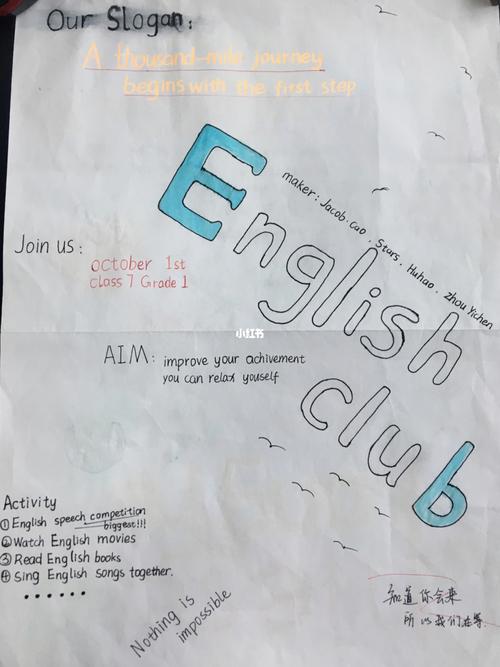 Our Slogan:
A thousand-mile journey
begins with the first step
English
club
maker: Jacob.Cao . Stars . Huhao . Zhou Yichen
Join us:
october 1st
class 7 Grade 1
小红书
AIM: improve your achivement
you can relax youself
Activity
①English speech competition
biggest!!!
②Watch English movies
③Read English books
④Sing English songs together.
......
Nothing is
impossible
知道你会来
所以我们在等